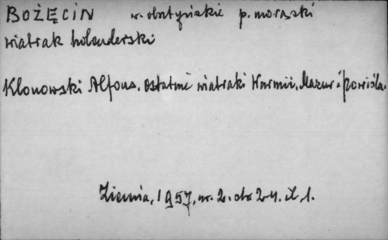 BOŻĘCIN w. olsztyńskie p. morąski
wiatrak holenderski
Klonowski Alfons. Ostatnie wiatraki Warmii, Mazur i Powiśla.
Ziemia, 1957, nr. 2. str 24. il 1.